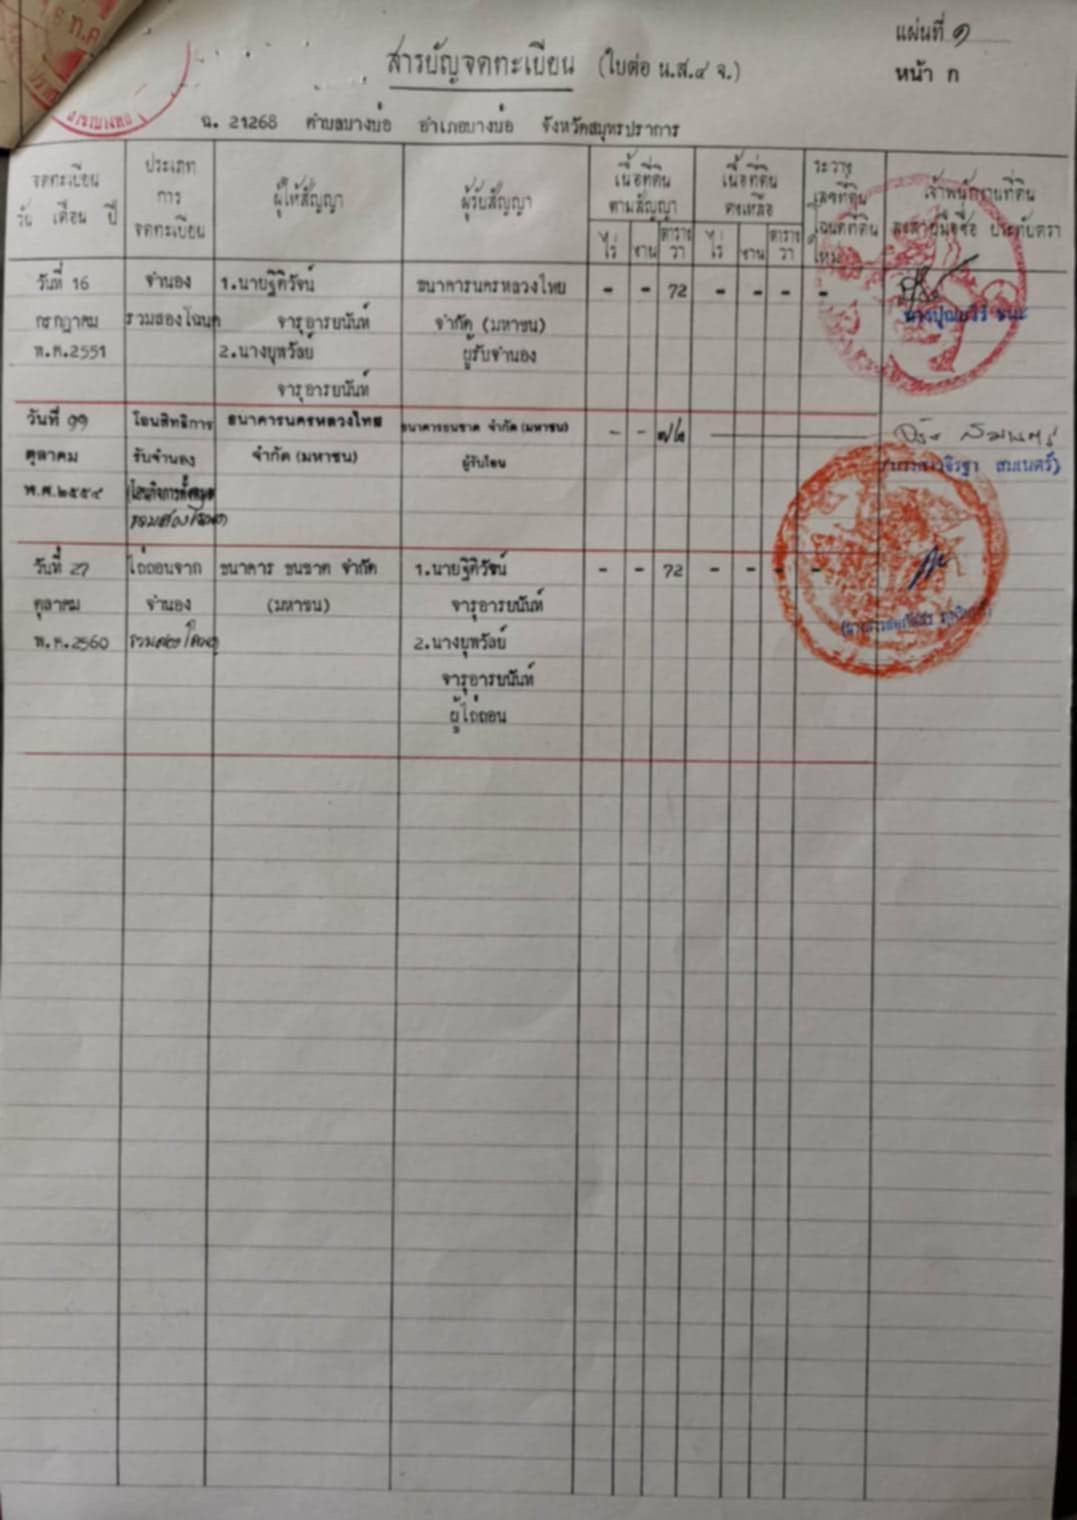 แผ่นที่ ๑
สารบัญจดทะเบียน (ใบต่อ น.ส.๔ จ.)
หน้า ก
ฉ. 21268 ตำบลบางบ่อ อำเภอบางบ่อ จังหวัดสมุทรปราการ
จดทะเบียน วัน เดือน ปี
ประเภท การ จดทะเบียน
ผู้ให้สัญญา
ผู้รับสัญญา
เนื้อที่ดิน ตามสัญญา
ไร่ งาน ตาราง วา
เนื้อที่ดิน คงเหลือ
ไร่ งาน ตาราง วา
ระวาง เลขที่ดิน โฉนดที่ดิน ใหม่
เจ้าพนักงานที่ดิน ลงลายมือชื่อ ประทับตรา
วันที่ 16 จำนอง 1.นายฐิติวัจน์ ธนาคารนครหลวงไทย - - 72 - - - -
กรกฎาคม รวมสองโฉนด จารุอารยนันท์ จำกัด (มหาชน)
พ.ศ.2551 2.นางยุพวัลย์ ผู้รับจำนอง
จารุอารยนันท์
วันที่ ๑๑ โอนสิทธิการ ธนาคารนครหลวงไทย ธนาคารธนชาต จำกัด (มหาชน) - - ๗๒
ตุลาคม รับจำนอง จำกัด (มหาชน) ผู้รับโอน
พ.ศ.๒๕๕๔ โอนกิจการทั้งหมด
รวมสองโฉนด
วันที่ 27 ไถ่ถอนจาก ธนาคาร ธนชาต จำกัด 1.นายฐิติวัจน์ - - 72 - - - -
ตุลาคม จำนอง (มหาชน) จารุอารยนันท์
พ.ศ.2560 รวมสองโฉนด 2.นางยุพวัลย์
จารุอารยนันท์
ผู้ไถ่ถอน